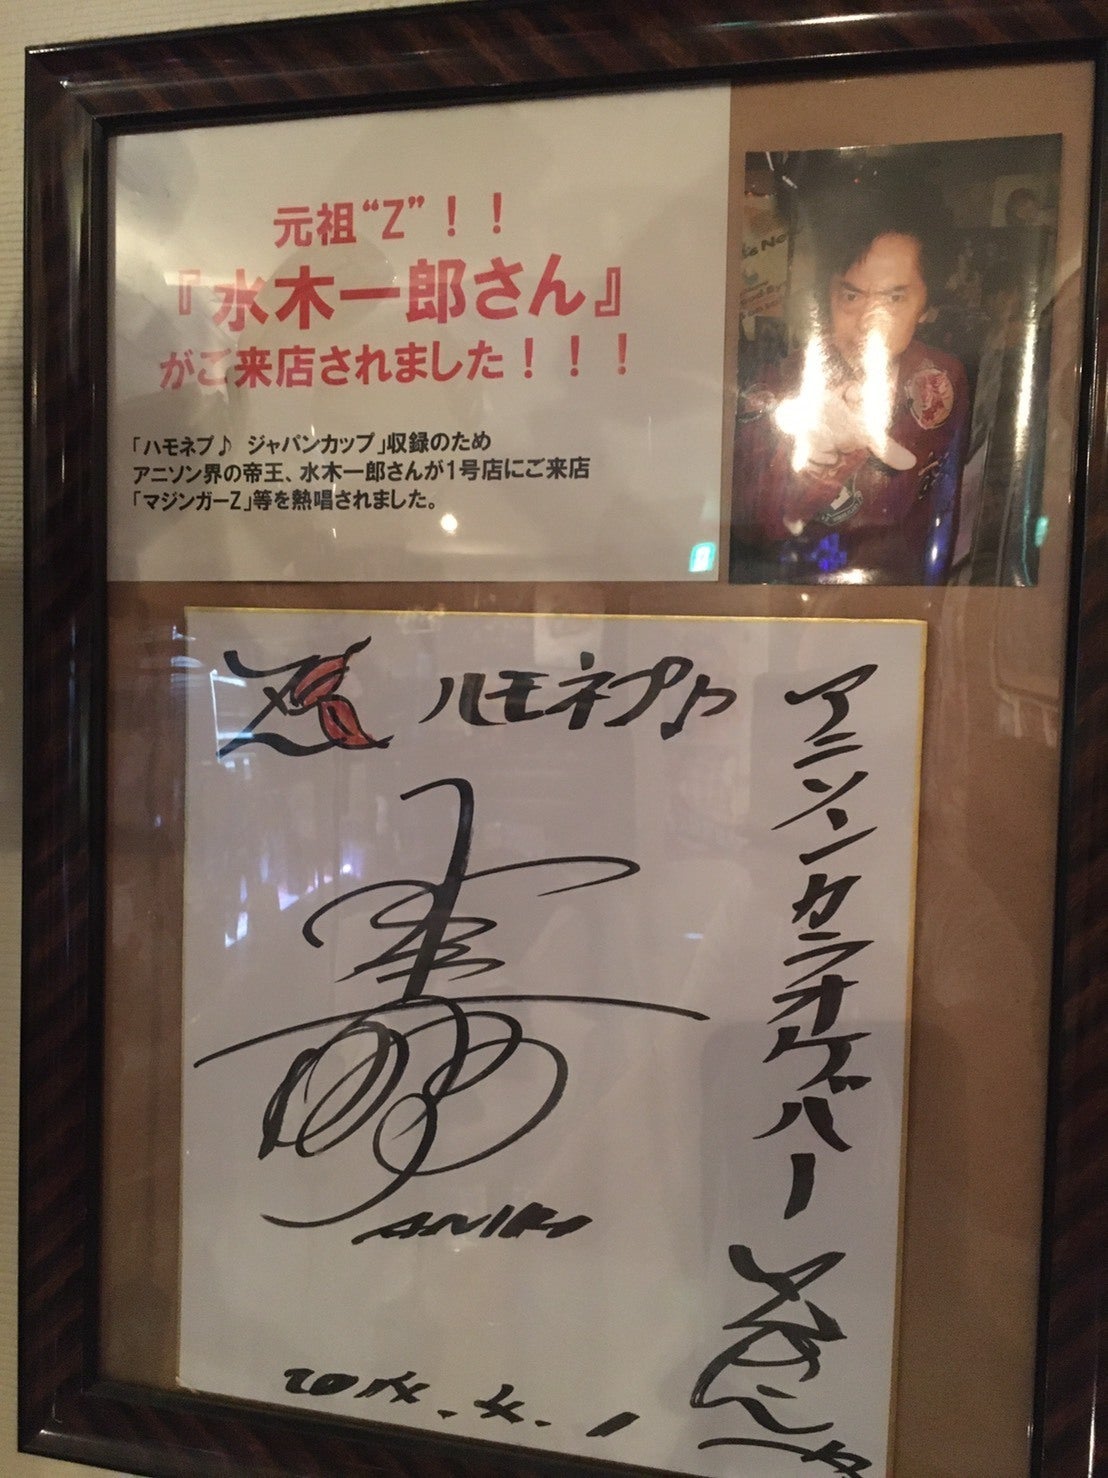 元祖“Z”！！
『水木一郎さん』
がご来店されました！！！
「ハモネプ♪ ジャパンカップ」収録のため
アニソン界の帝王、水木一郎さんが1号店にご来店
「マジンガーZ」等を熱唱されました。
Z ハモネプ♪
アニソンカラオケバー
ANIKI